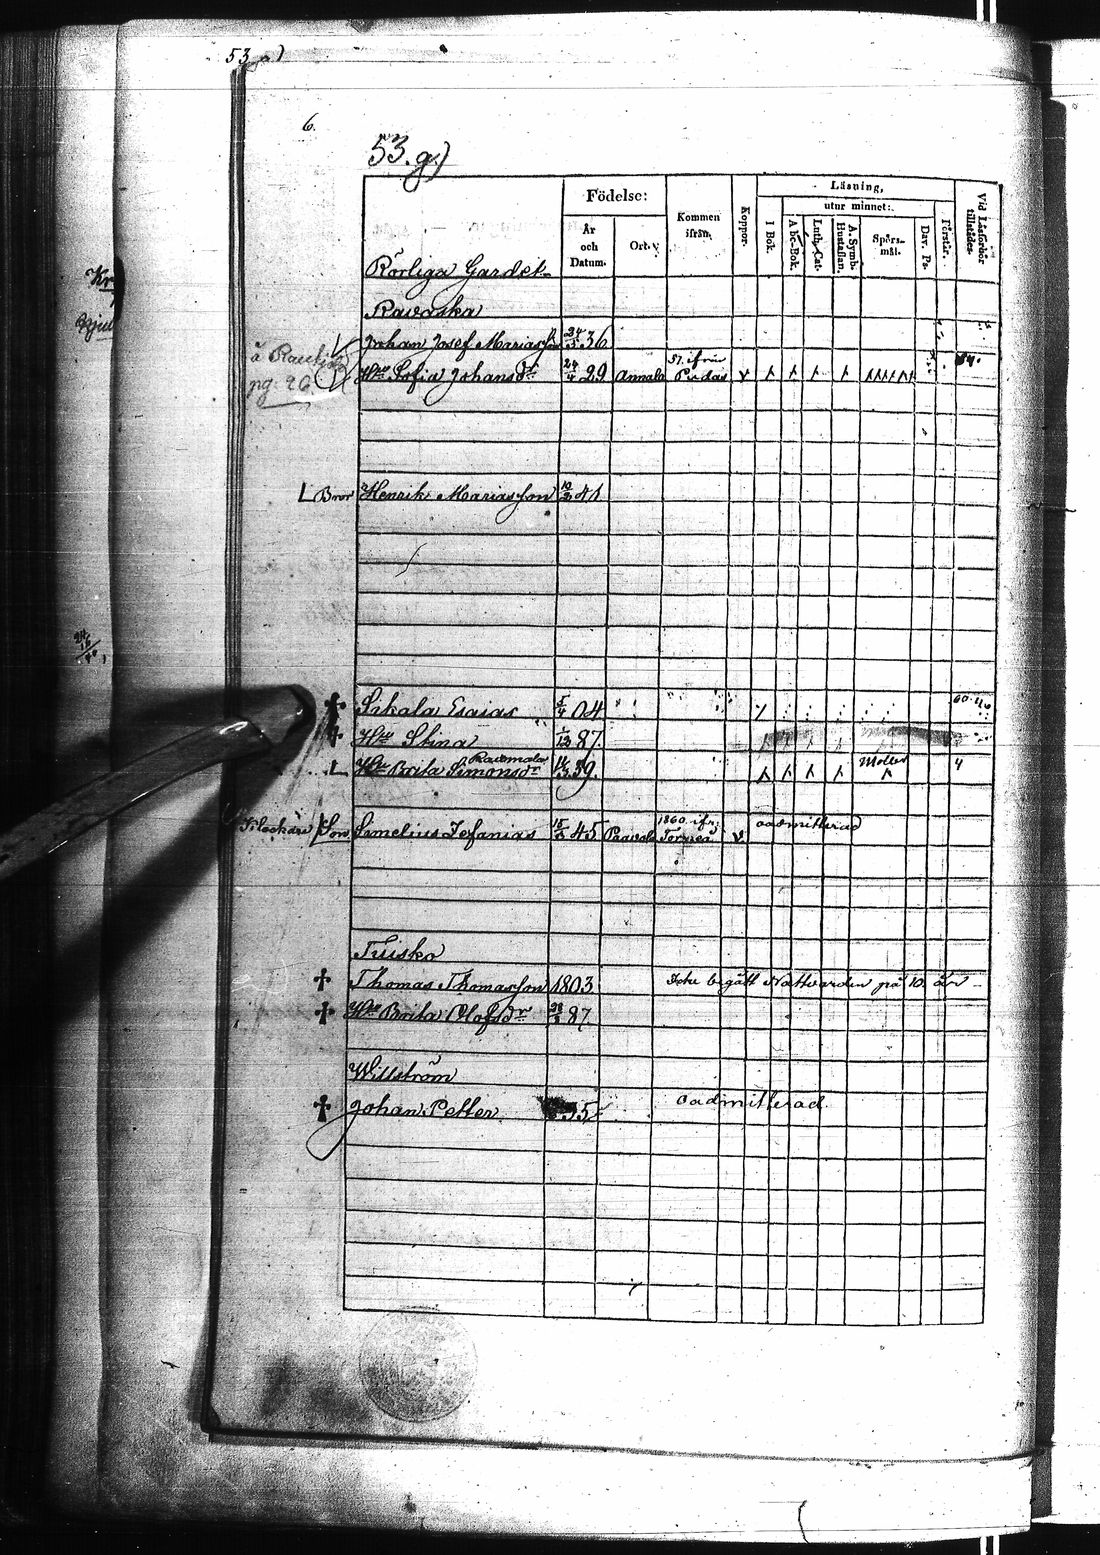 53 g)
6.
53.g.)
Födelse:
År och Datum.
Ort.
Kommen ifrån.
Koppor.
Läsning,
utur minnet:
I Bok.
Abc-Bok.
Luth. Cat.
A. Symb. Hustaflan.
Spörs-mål.
Dav. Ps.
Förstår.
Vid Läsförhör tillstädes.
Rörliga Gardet
Ravaska
Johan Josef Mariasson 36
å Rauhi
pg. 26
Hu Sofia Johansdr 24/4 29 Annala 57. ifrån Pudas
Bror Henrik Mariasson 41
Sakala Esaias 5/4 04 60
Hu Stina 1/12 87.
Hu Brita Simonsdr 39.
Klockare Son Smelius Zefanias 45 Paavola 1860. ifr. Torneå v oadmitterad
Tuisko
Thomas Thomasson 1803 Icke begått Nattvarden på 10 år
Hu Brita Olofsdr 87
Willström
Johan Petter 35 oadmitterad.